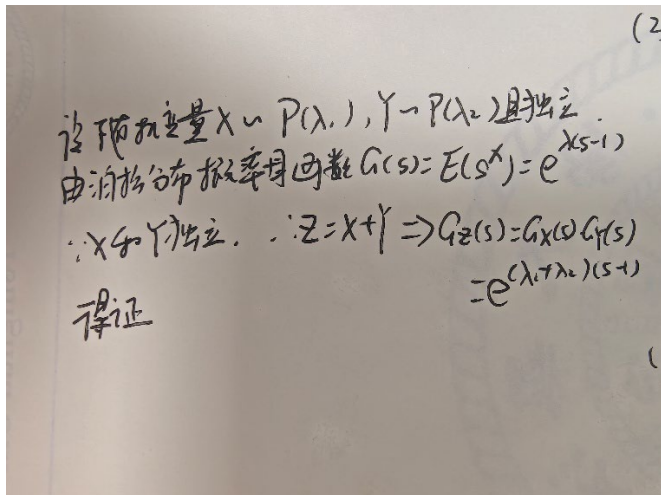 (2
设随机变量X~P(λ₁),Y~P(λ₂)且独立.
由泊松分布概率母函数G(s)=E(s^X)=e^{λ(s-1)}
∵X和Y独立. ∴Z=X+Y⇒G_Z(s)=G_X(s)G_Y(s)
=e^{(λ₁+λ₂)(s-1)}
得证
(